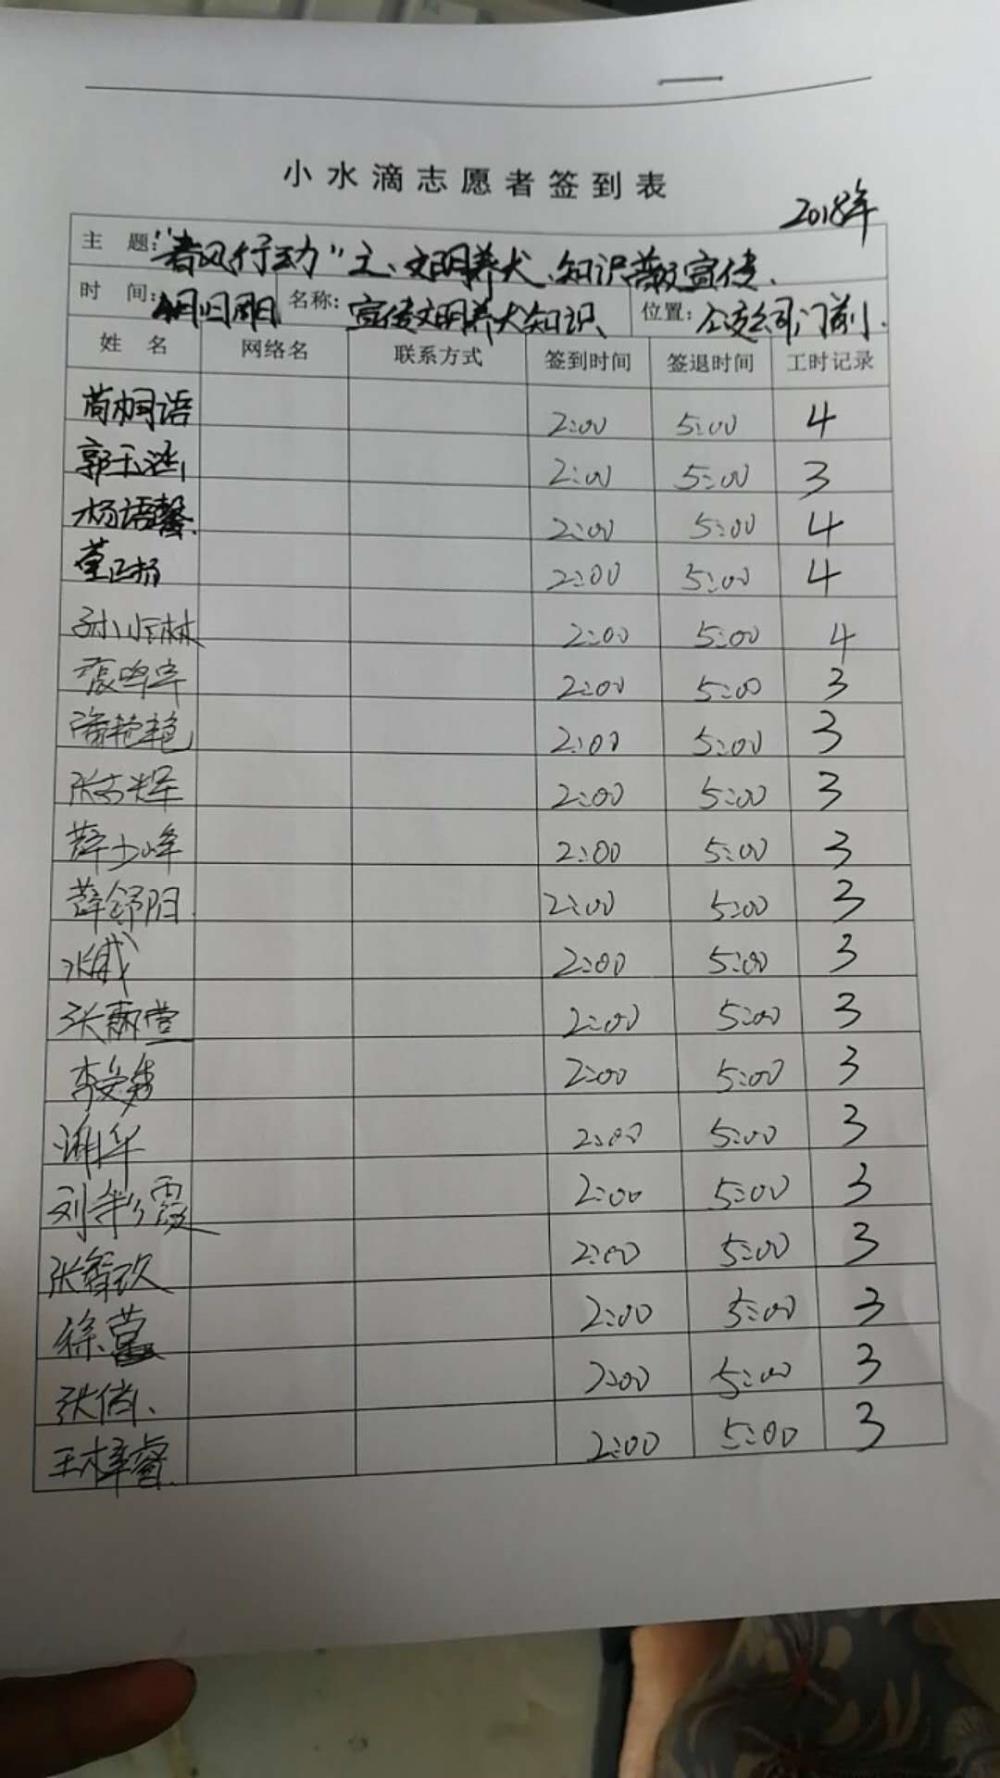 小水滴志愿者签到表
2018年
主 题：“春风行动”之、文明养犬、知识普及宣传.
时 间：4月1日周日 名称：宣传文明养犬知识、 位置：公交公司门前.
姓 名 网络名 联系方式 签到时间 签退时间 工时记录
苘桐语 2:00 5:00 4
郭玉涵 2:00 5:00 3
杨语馨. 2:00 5:00 4
董正杨 2:00 5:00 4
孙小林 2:00 5:00 4
2:00 5:00 3
艳艳 2:00 5:00 3
张志辉 2:00 5:00 3
薛少峰 2:00 5:00 3
薛舒阳. 2:00 5:00 3
张威 2:00 5:00 3
张丽莹 2:00 5:00 3
李 2:00 5:00 3
谢华 2:00 5:00 3
刘彩霞 2:00 5:00 3
张 2:00 5:00 3
徐 2:00 5:00 3
张倩、 2:00 5:00 3
王梓睿. 2:00 5:00 3